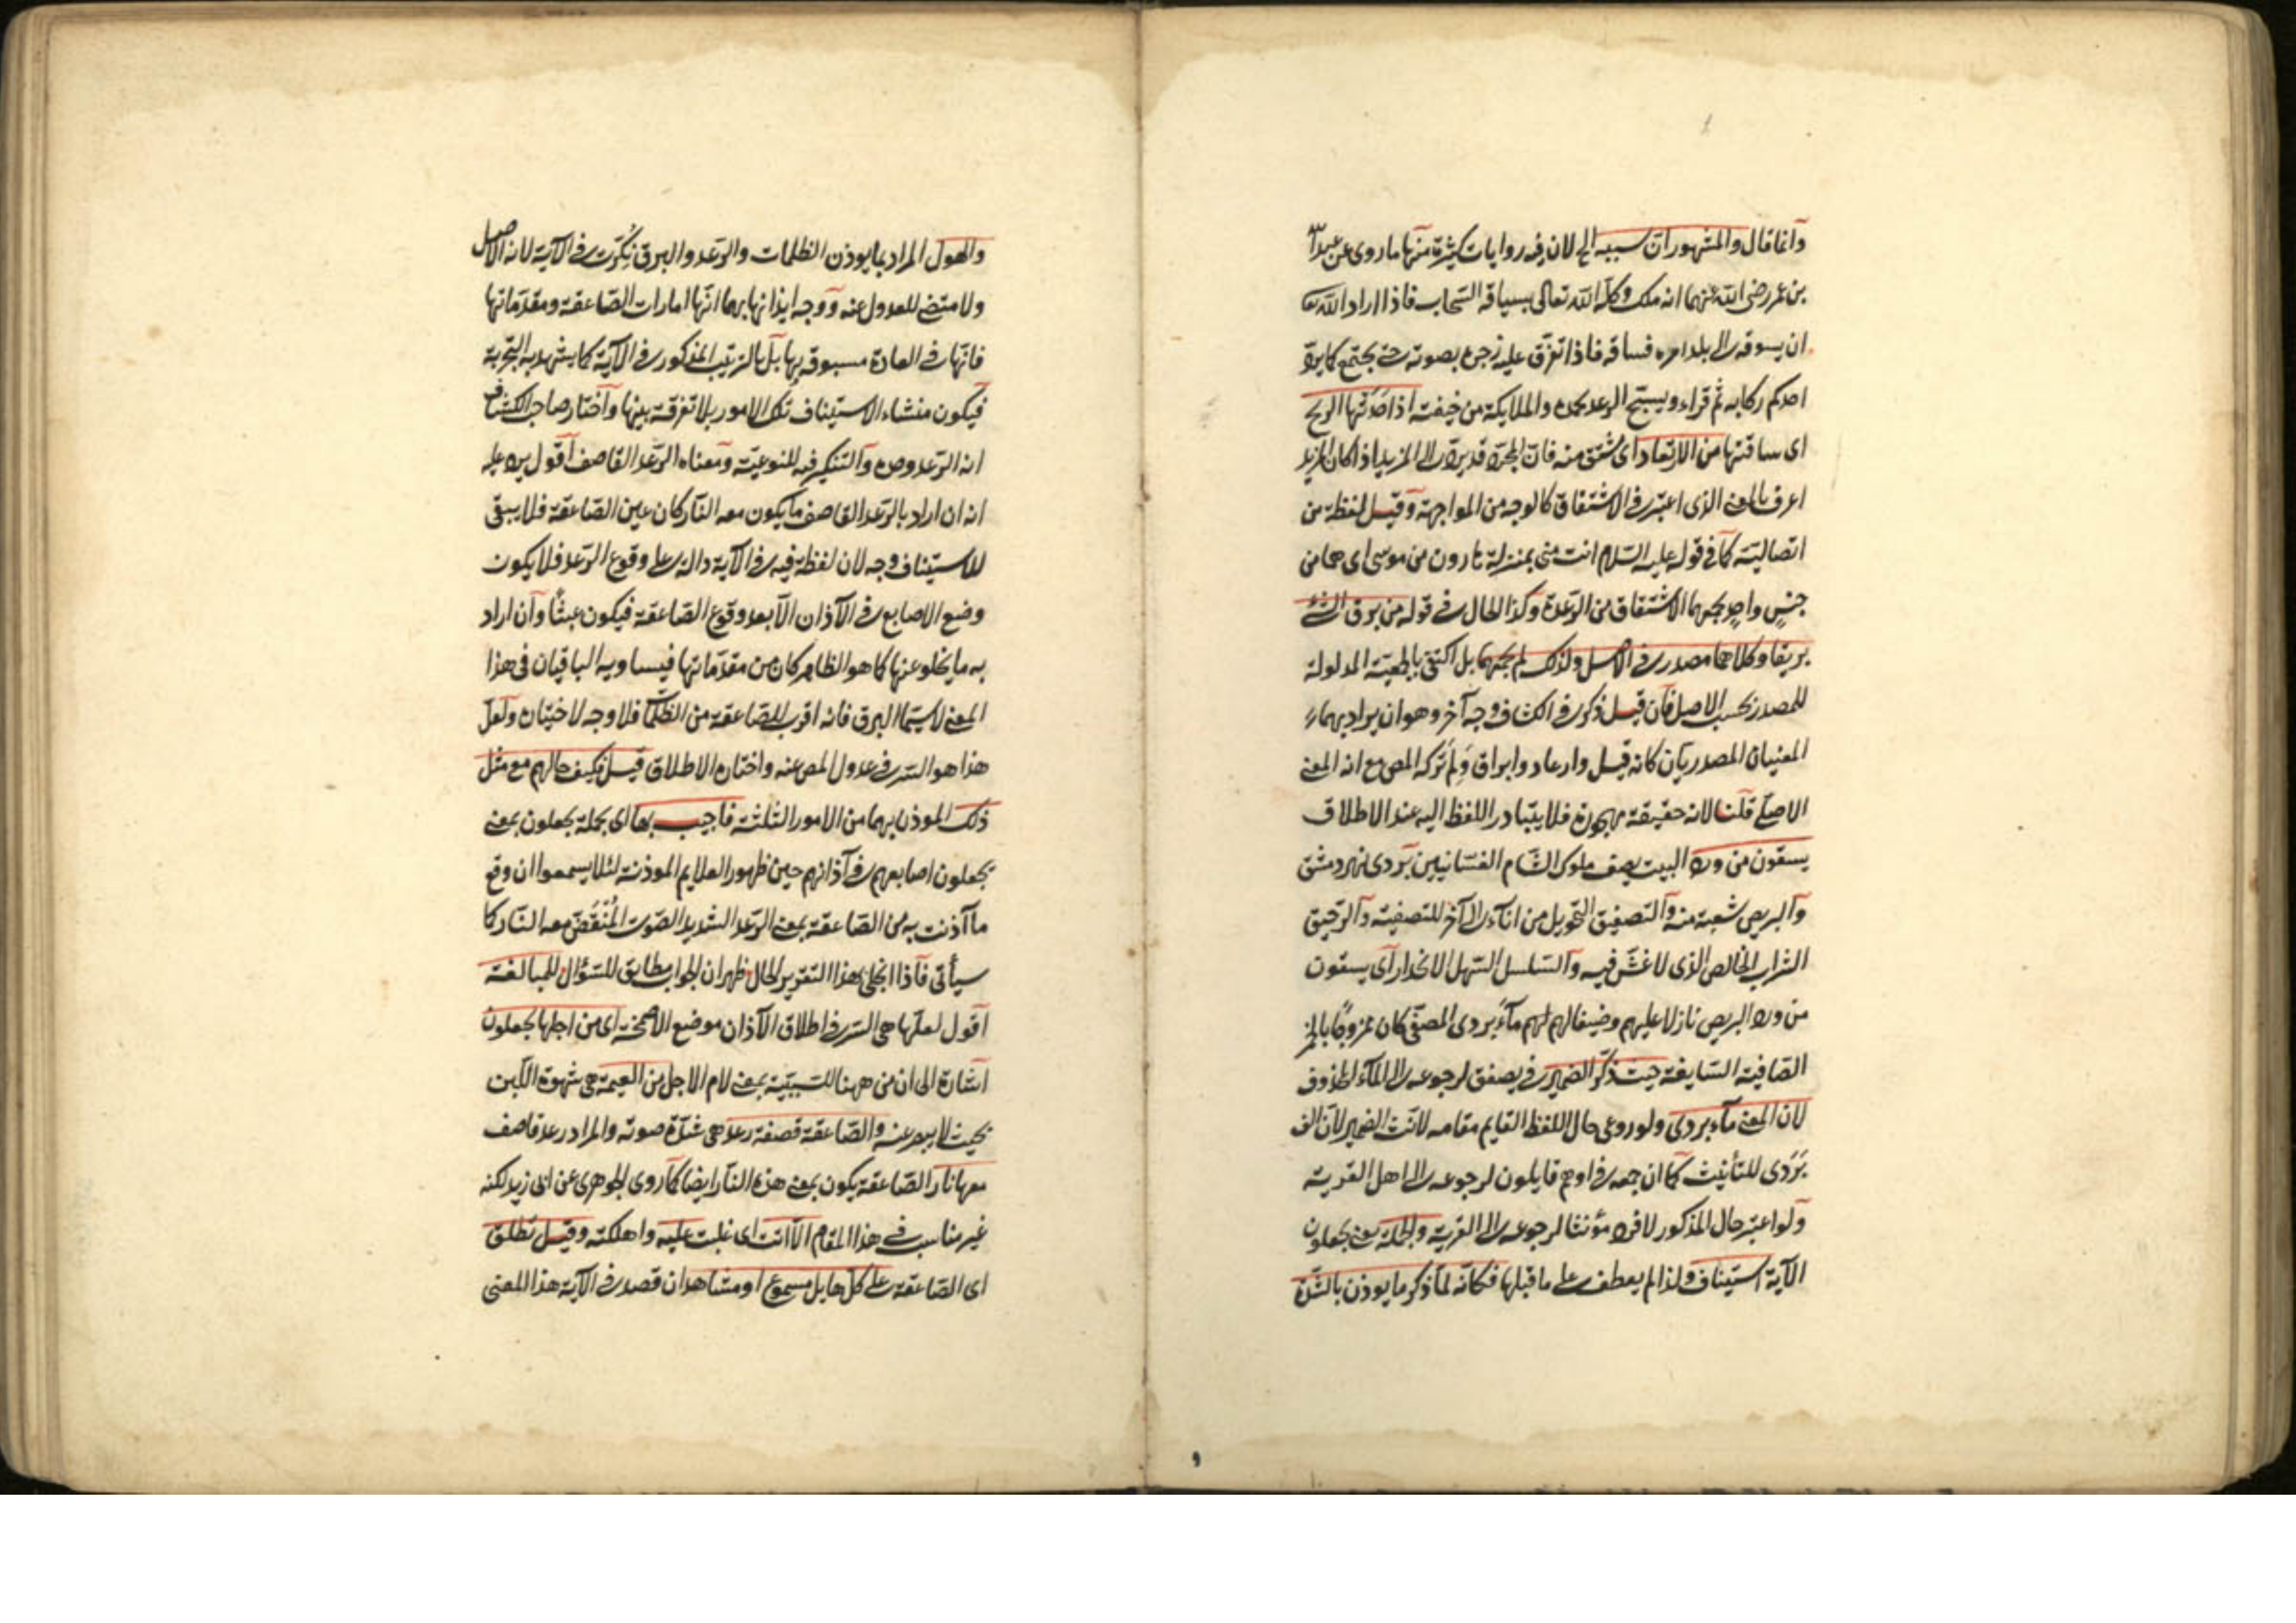 وانما قال والمشهور ان سببه الخ لان فيه روايات كثيرة منها ما روى عن عبد الله
بن عمر رضى الله عنهما انه ملك وكله الله تعالى بسياقة السحاب فاذا اراد الله
ان يسوقه الى بلد امره فساقه فاذا تفرق عليه زجره بصوته حتى يجتمع كما يرد
احدكم ركابه ثم قراء ويسبح الرعد بحمده والملايكة من خيفته اذا حدتها الريح
اى ساقتها من الارتعاد اى مشتق منه فان المجرد قد يرد الى المزيد اذا كان المزيد
اعرف بالمعنى الذى اعتبر فى الاشتقاق كالوجه من المواجهة وقيل لفظة من
اتصالية كما فى قوله عليه السلام انت منى بمنزلة هارون من موسى اى هما من
جنس واحد يجمعهما الاشتقاق من الرعدة وكذا الحال فى قوله من برق الشئ
بريقا وكلاهما مصدر فى الاصل ولذلك لم يجمعهما بل اكتفى بالجمعية المدلولة
للمصدر بحسب الاصل فان قيل ذكر فى الكشاف وجه آخر وهو ان يراد بهما
المعنيان المصدريان كانه قيل وارعاد وابراق ولم تركه المص مع انه المعنى
الاصلى قلنا لانه حقيقة مهجورة فلا يتبادر اللفظ اليه عند الاطلاق
يسقون من ورد البيت يصف ملوك الشام الغسانيين بردى نهر دمشق
والبريص شعبة منه والتصفيق التحويل من اناء الى آخر للتصفية والرحيق
الشراب الخالص الذى لا غش فيه والسلسل السهل الانحدار اى يسقون
من ورد البريص نازلا عليهم وضيفا لهم ماء بردى المصفى كان ممزوجا بالخمر
الصافية السايغة حيث ذكر الضمير فى يصفق لرجوعه الى الماء المحذوف
لان المعنى ماء بردى ولو روعى حال اللفظ القايم مقامه لانث الضمير لان الف
بردى للتأنيث كما ان جمعه فى اوهم قايلون لرجوعه الى اهل القرية
ولو اعتبر حال المذكور لافرد مؤنثا لرجوعه الى القرية والجملة يعنى يجعلون
الآية استيناف ولذا لم يعطف على ما قبلها فكانه لما ذكر ما يوذن بالشدة
والهول المراد بما يوذن الظلمات والرعد والبرق نكرت فى الآية لانه الاصل
ولا مقتضى للعدول عنه ووجه ايذانها بهما انها امارات الصاعقة ومقدماتها
فانها فى العادة مسبوقة بها بل بالترتيب المذكور فى الآية كما يشهد به التجربة
فيكون منشاء الاستيناف تلك الامور بلا تفرقة بينها واختار صاحب الكشاف
انه الرعد وحده والتنكير فيه للنوعية ومعناه الرعد القاصف اقول يرد عليه
انه ان اراد بالرعد القاصف ما يكون معه النار كان عين الصاعقة فلا يبقى
للاستيناف وجه لان لفظة فيه فى الآية دالة على وقوع الرعد فلا يكون
وضع الاصابع فى الآذان الا بعد وقوع الصاعقة فيكون عبثا وان اراد
به ما يخلو عنها كما هو الظاهر كان من مقدماتها فيساويه الباقيان فى هذا
المعنى لاسيما البرق فانه اقرب للصاعقة من الظلمة فلا وجه لاختياره ولعل
هذا هو السر فى عدول المص عنه واختاره الاطلاق قيل فكيف حالهم مع مثل
ذلك الموذن بهما من الامور الثلثة فاجيب بها اى بجملة يجعلون بمعنى
يجعلون اصابعهم فى آذانهم حين ظهور العلايم الموذنة لئلا يسمعوا ان وقع
ما آذنت به من الصاعقة بمعنى الرعد الشديد الصوت المنقض معه النار كما
سيأتى فاذا انجلى هذا التقرير الحال ظهر ان الجواب مطابق للسؤال للمبالغة
اقول لعلها هى السر فى اطلاق الآذان موضع الاصمخة اى من اجلها يجعلون
اشارة الى ان من ههنا للسببية بمعنى لام الاجل من العيمة هى شهوة اللبن
بحيث لا يصبر عنه والصاعقة قصفة رعد هى شدة صوته والمراد رعد قاصف
معها نار الصاعقة يكون بمعنى هذه النار ايضا كما روى الجوهرى عن ابى زيد لكنه
غير مناسب فى هذا المقام الا اتت اى غلبت عليه واهلكته وقيل تطلق
اى الصاعقة على كل هايل مسموع او مشاهد ان قصد فى الآية هذا المعنى